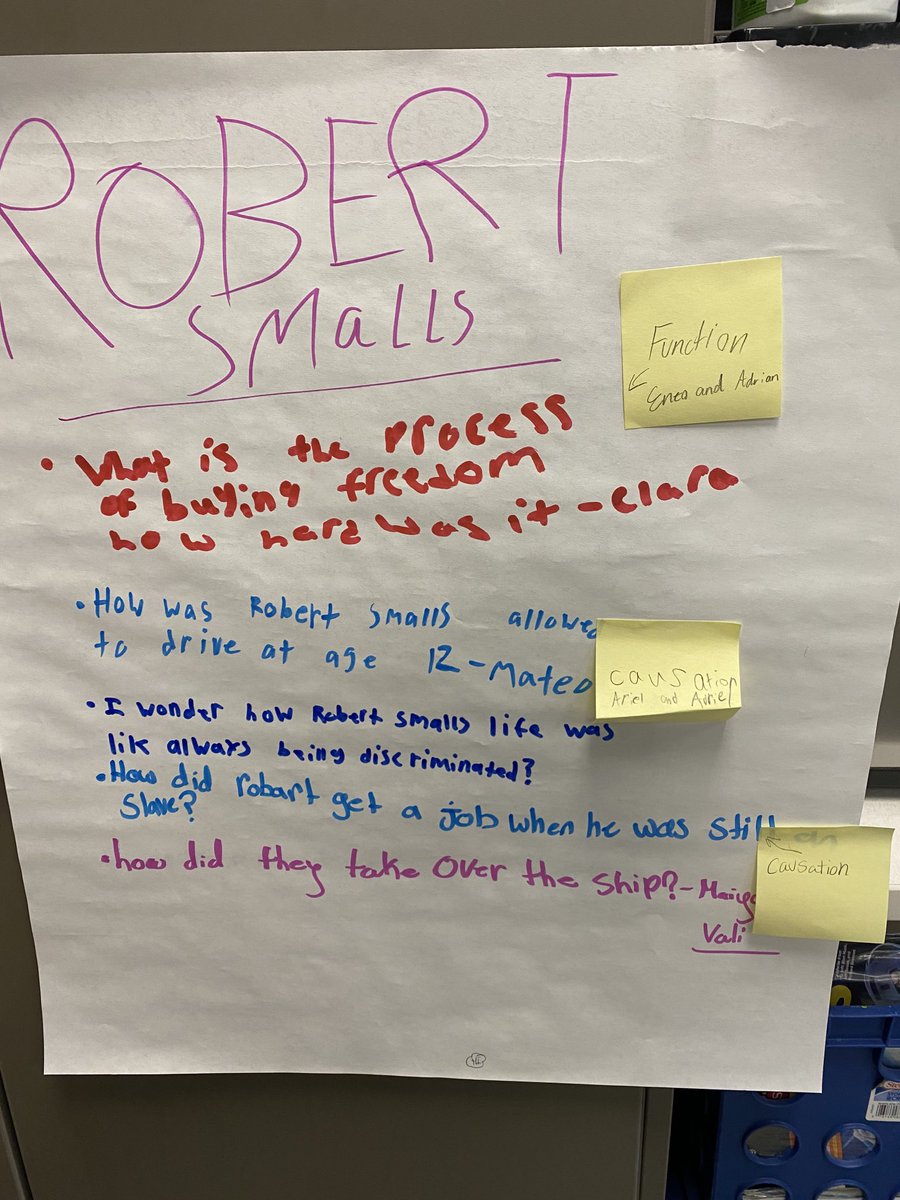 ROBERT
SMallS
Function
Enea and Adrian
• What is the process
of buying freedom
how hard was it - Clara
• How was Robert Smalls allowed
to drive at age 12 - Mateo
causation
Ariel and Avriel
• I wonder how Robert smalls life was
lik always being discriminated?
• How did robart get a job when he was still an
Slave?
Causation
• how did they take Over the Ship? -
Vali